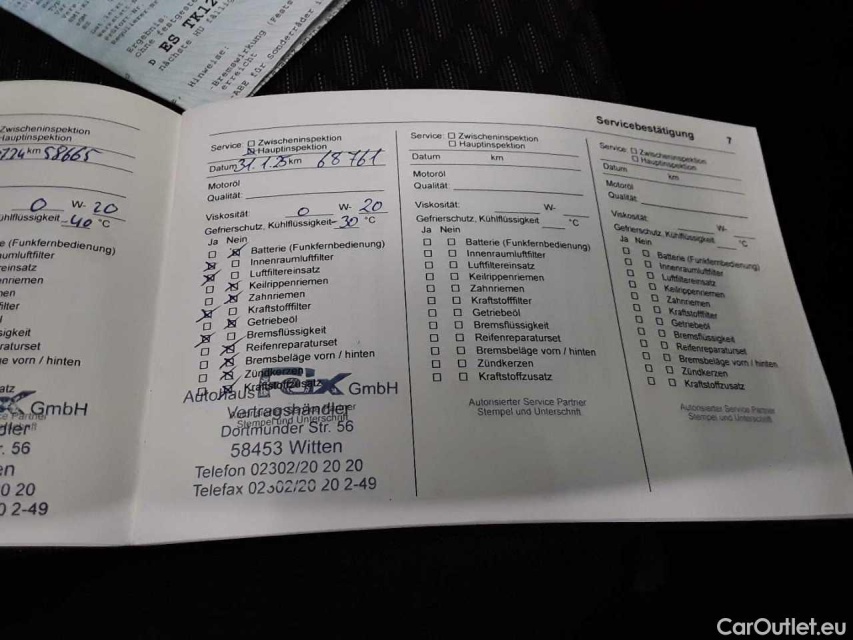 Ergebnis:
ohne festgeste
D ES TK12
nächste HU fällig
Hinweise:
-Bremswirkung (Fests
erreicht
-ABE für Sonderräder i
Zwischeninspektion
Hauptinspektion
7.24 km 58665
0 W- 20
ühlflüssigkeit -40 °C
e (Funkfernbedienung)
umluftfilter
einsatz
nriemen
en
ilter
l
sigkeit
raturset
e vorn / hinten
atz
GmbH
e Partner
dler
. 56
en
0 20
0 2-49
Service: Zwischeninspektion
Hauptinspektion
Datum 31.1.25 km 68761
Motoröl
Qualität:
Viskosität: 0 W- 20
Gefrierschutz, Kühlflüssigkeit -30 °C
Ja Nein
Batterie (Funkfernbedienung)
Innenraumluftfilter
Luftfiltereinsatz
Keilrippenriemen
Zahnriemen
Kraftstofffilter
Getriebeöl
Bremsflüssigkeit
Reifenreparaturset
Bremsbeläge vorn / hinten
Zündkerzen
Kraftstoffzusatz
Autohaus GmbH
Vertragshändler
Stempel und Unterschrift
Dortmunder Str. 56
58453 Witten
Telefon 02302/20 20 20
Telefax 02302/20 20 2-49
Service: Zwischeninspektion
Hauptinspektion
Datum km
Motoröl
Qualität:
Viskosität: W-
Gefrierschutz, Kühlflüssigkeit °C
Ja Nein
Batterie (Funkfernbedienung)
Innenraumluftfilter
Luftfiltereinsatz
Keilrippenriemen
Zahnriemen
Kraftstofffilter
Getriebeöl
Bremsflüssigkeit
Reifenreparaturset
Bremsbeläge vorn / hinten
Zündkerzen
Kraftstoffzusatz
Autorisierter Service Partner
Stempel und Unterschrift
Servicebestätigung 7
Service: Zwischeninspektion
Hauptinspektion
Datum km
Motoröl
Qualität:
Viskosität: W-
Gefrierschutz, Kühlflüssigkeit °C
Ja Nein
Batterie (Funkfernbedienung)
Innenraumluftfilter
Luftfiltereinsatz
Keilrippenriemen
Zahnriemen
Kraftstofffilter
Getriebeöl
Bremsflüssigkeit
Reifenreparaturset
Bremsbeläge vorn / hinten
Zündkerzen
Kraftstoffzusatz
Autorisierter Service Partner
Stempel und Unterschrift
CarOutlet.eu